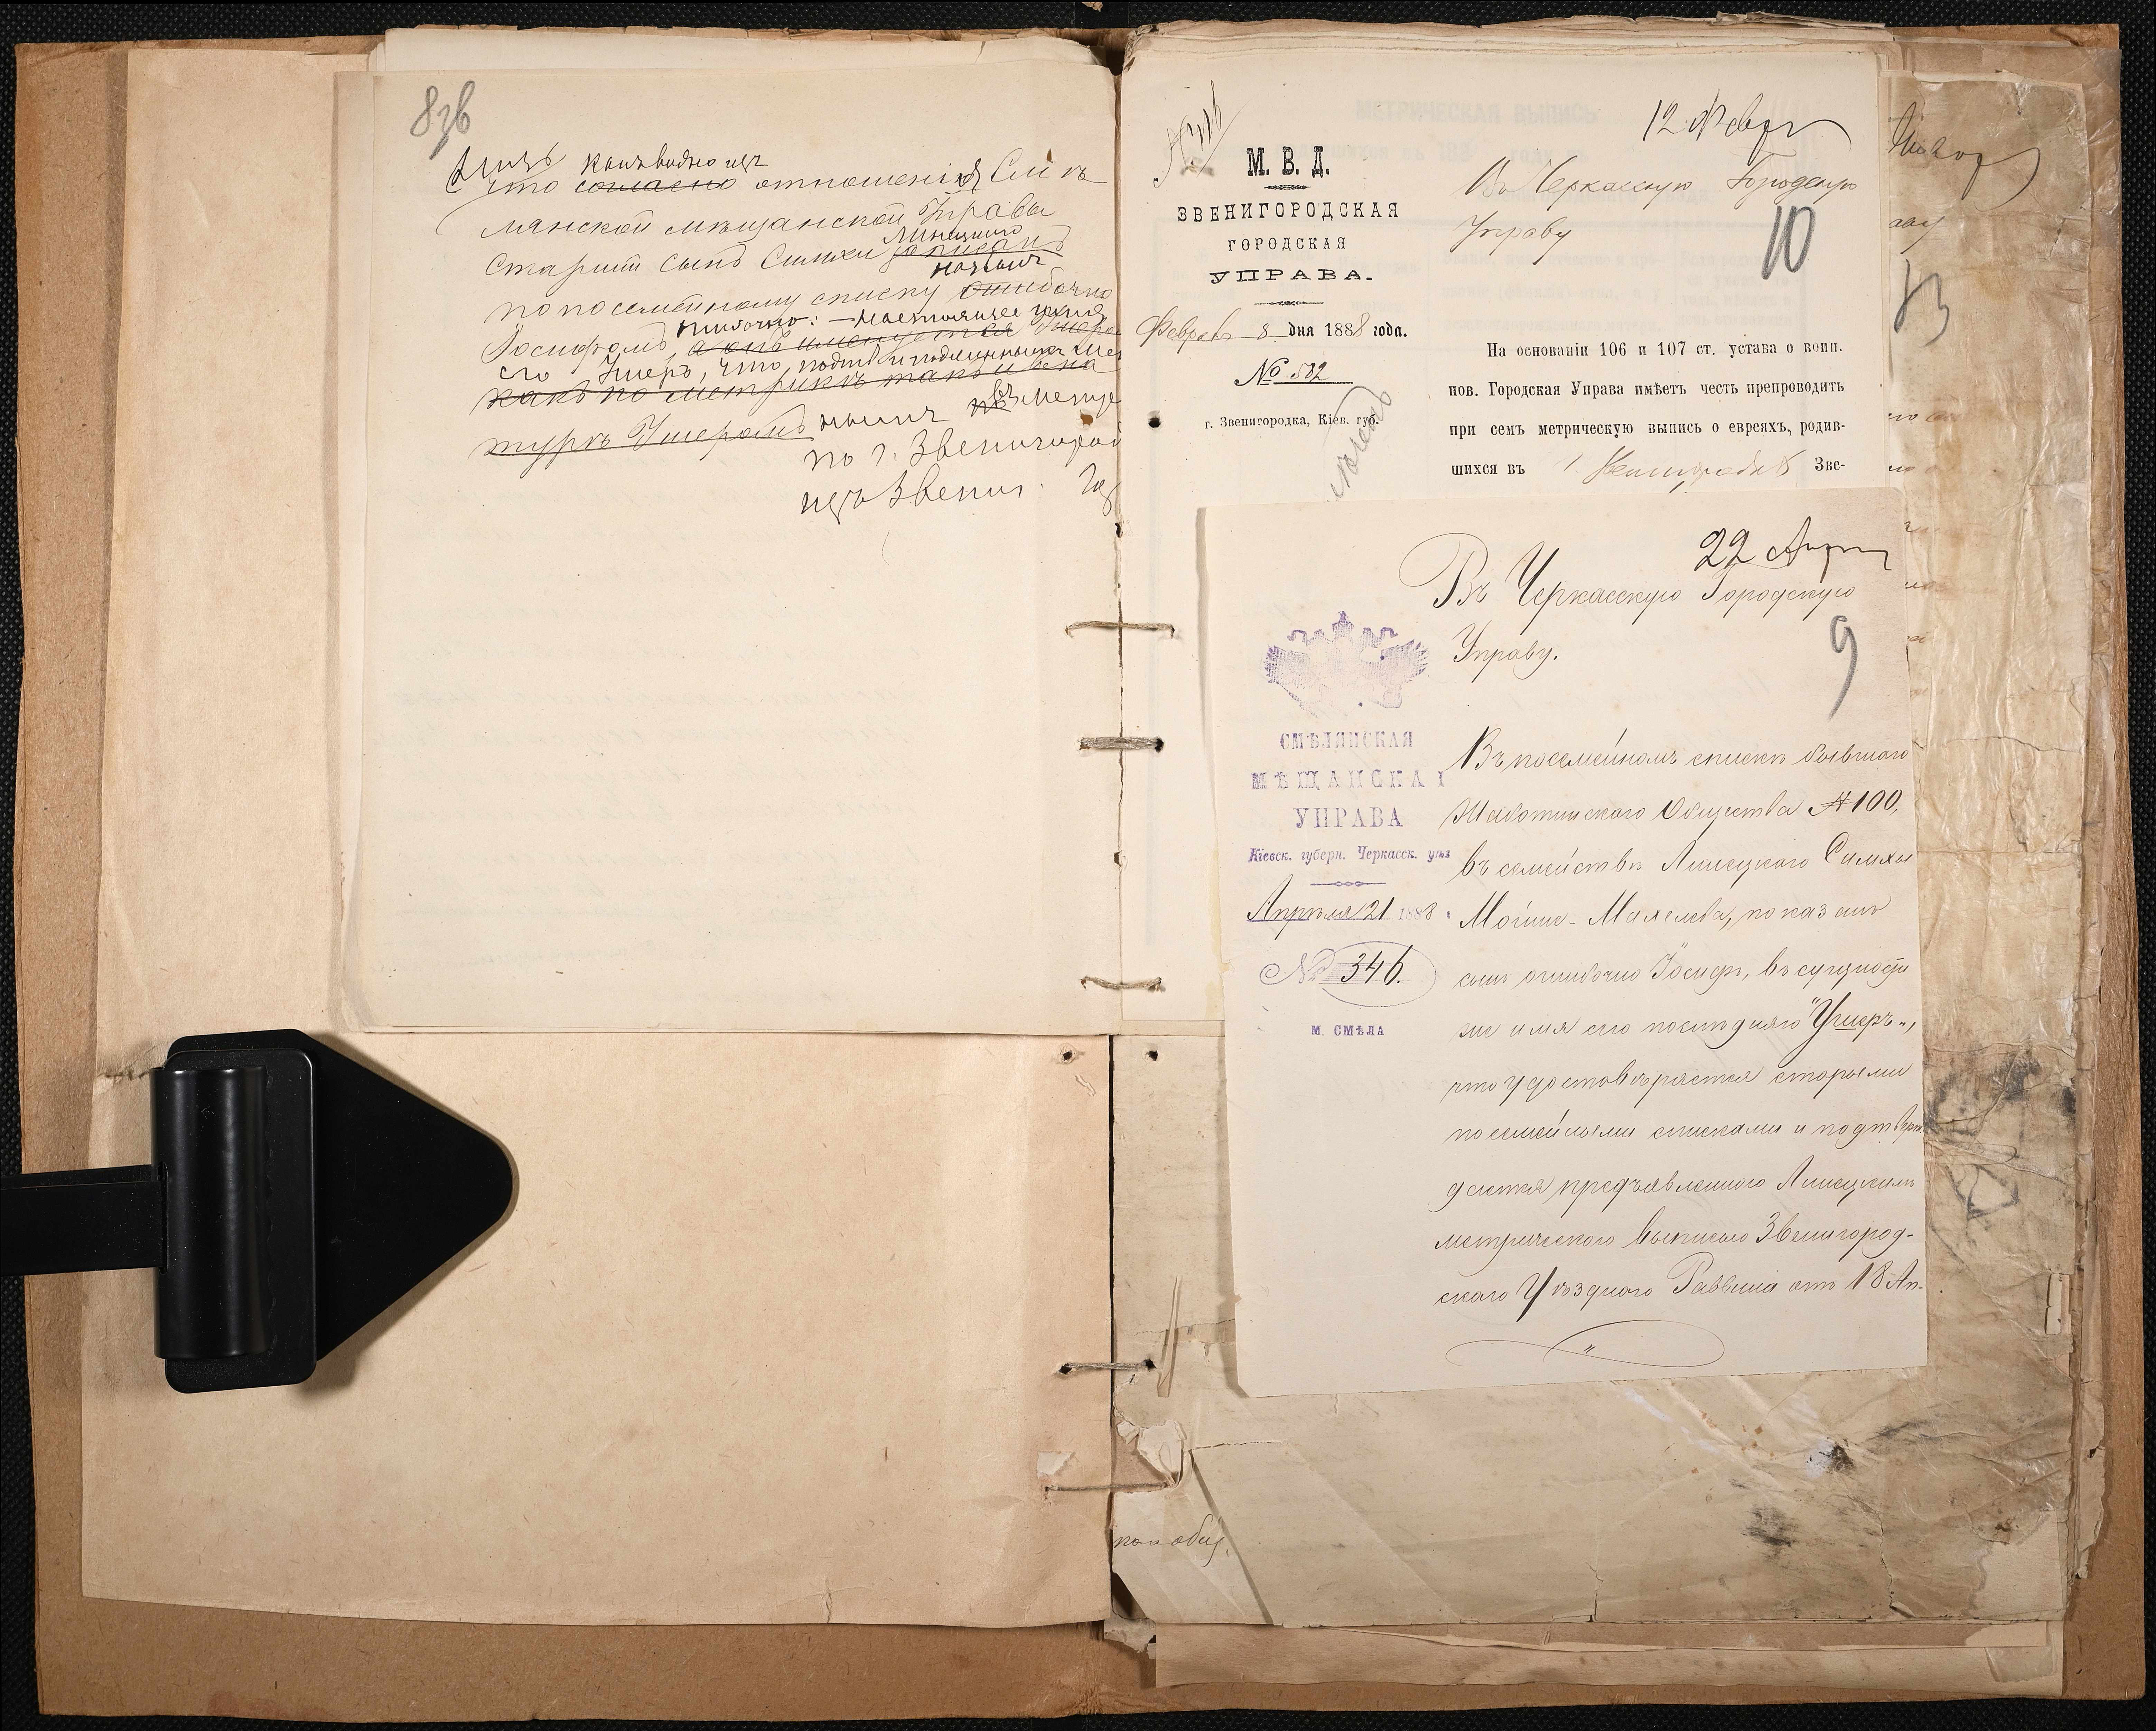 8зв
какъ видно изъ
что согласно отношенія Смѣ
лянской мѣщанской Управы
Линецкого
старшій сынъ Симхи записанъ
названъ
по посемейному списку ошибочно
ошибочно: — настоящее имя
Іосифомъ, а онъ именуется Ушеро
его Ушеръ, что подтв
какъ по метрикѣ такъ и
Ушеромъ
по г. Звенигород
изъ Звениг.
М. В. Д.
ЗВЕНИГОРОДСКАЯ
ГОРОДСКАЯ
УПРАВА.
Февраль 8 дня 1888 года.
№ 582
г. Звенигородка, Кіев. губ.
12 Февр
Въ Черкасскую Городскую
Управу
10
На основаніи 106 и 107 ст. устава о воин.
пов. Городская Управа имѣетъ честь препроводить
при семъ метрическую выпись о евреяхъ, родив-
шихся въ г. Звенигородкѣ Зве-
13
22 Апр
Въ Черкасскую Городскую
Управу.
9
СМѢЛЯНСКАЯ
МѢЩАНСКАЯ
УПРАВА
Кіевск. губерн. Черкасск. уѣз
Апрѣля 21 1888
№ 346.
М. СМѢЛА
Въ посемейномъ спискѣ бывшаго
Жаботинского Общества № 100,
въ семействѣ Линецкаго Симхи
Мойше-Махелева, показанъ
сынъ ошибочно Іосифъ, въ сущности
же имя его послѣдняго "Ушеръ",
что удостовѣряется старыми
посемейными списками и подтверж
дается предъявленного Линецкимъ
метрического выписью Звенигород-
ского Уѣздного Раввина отъ 18 Ап-